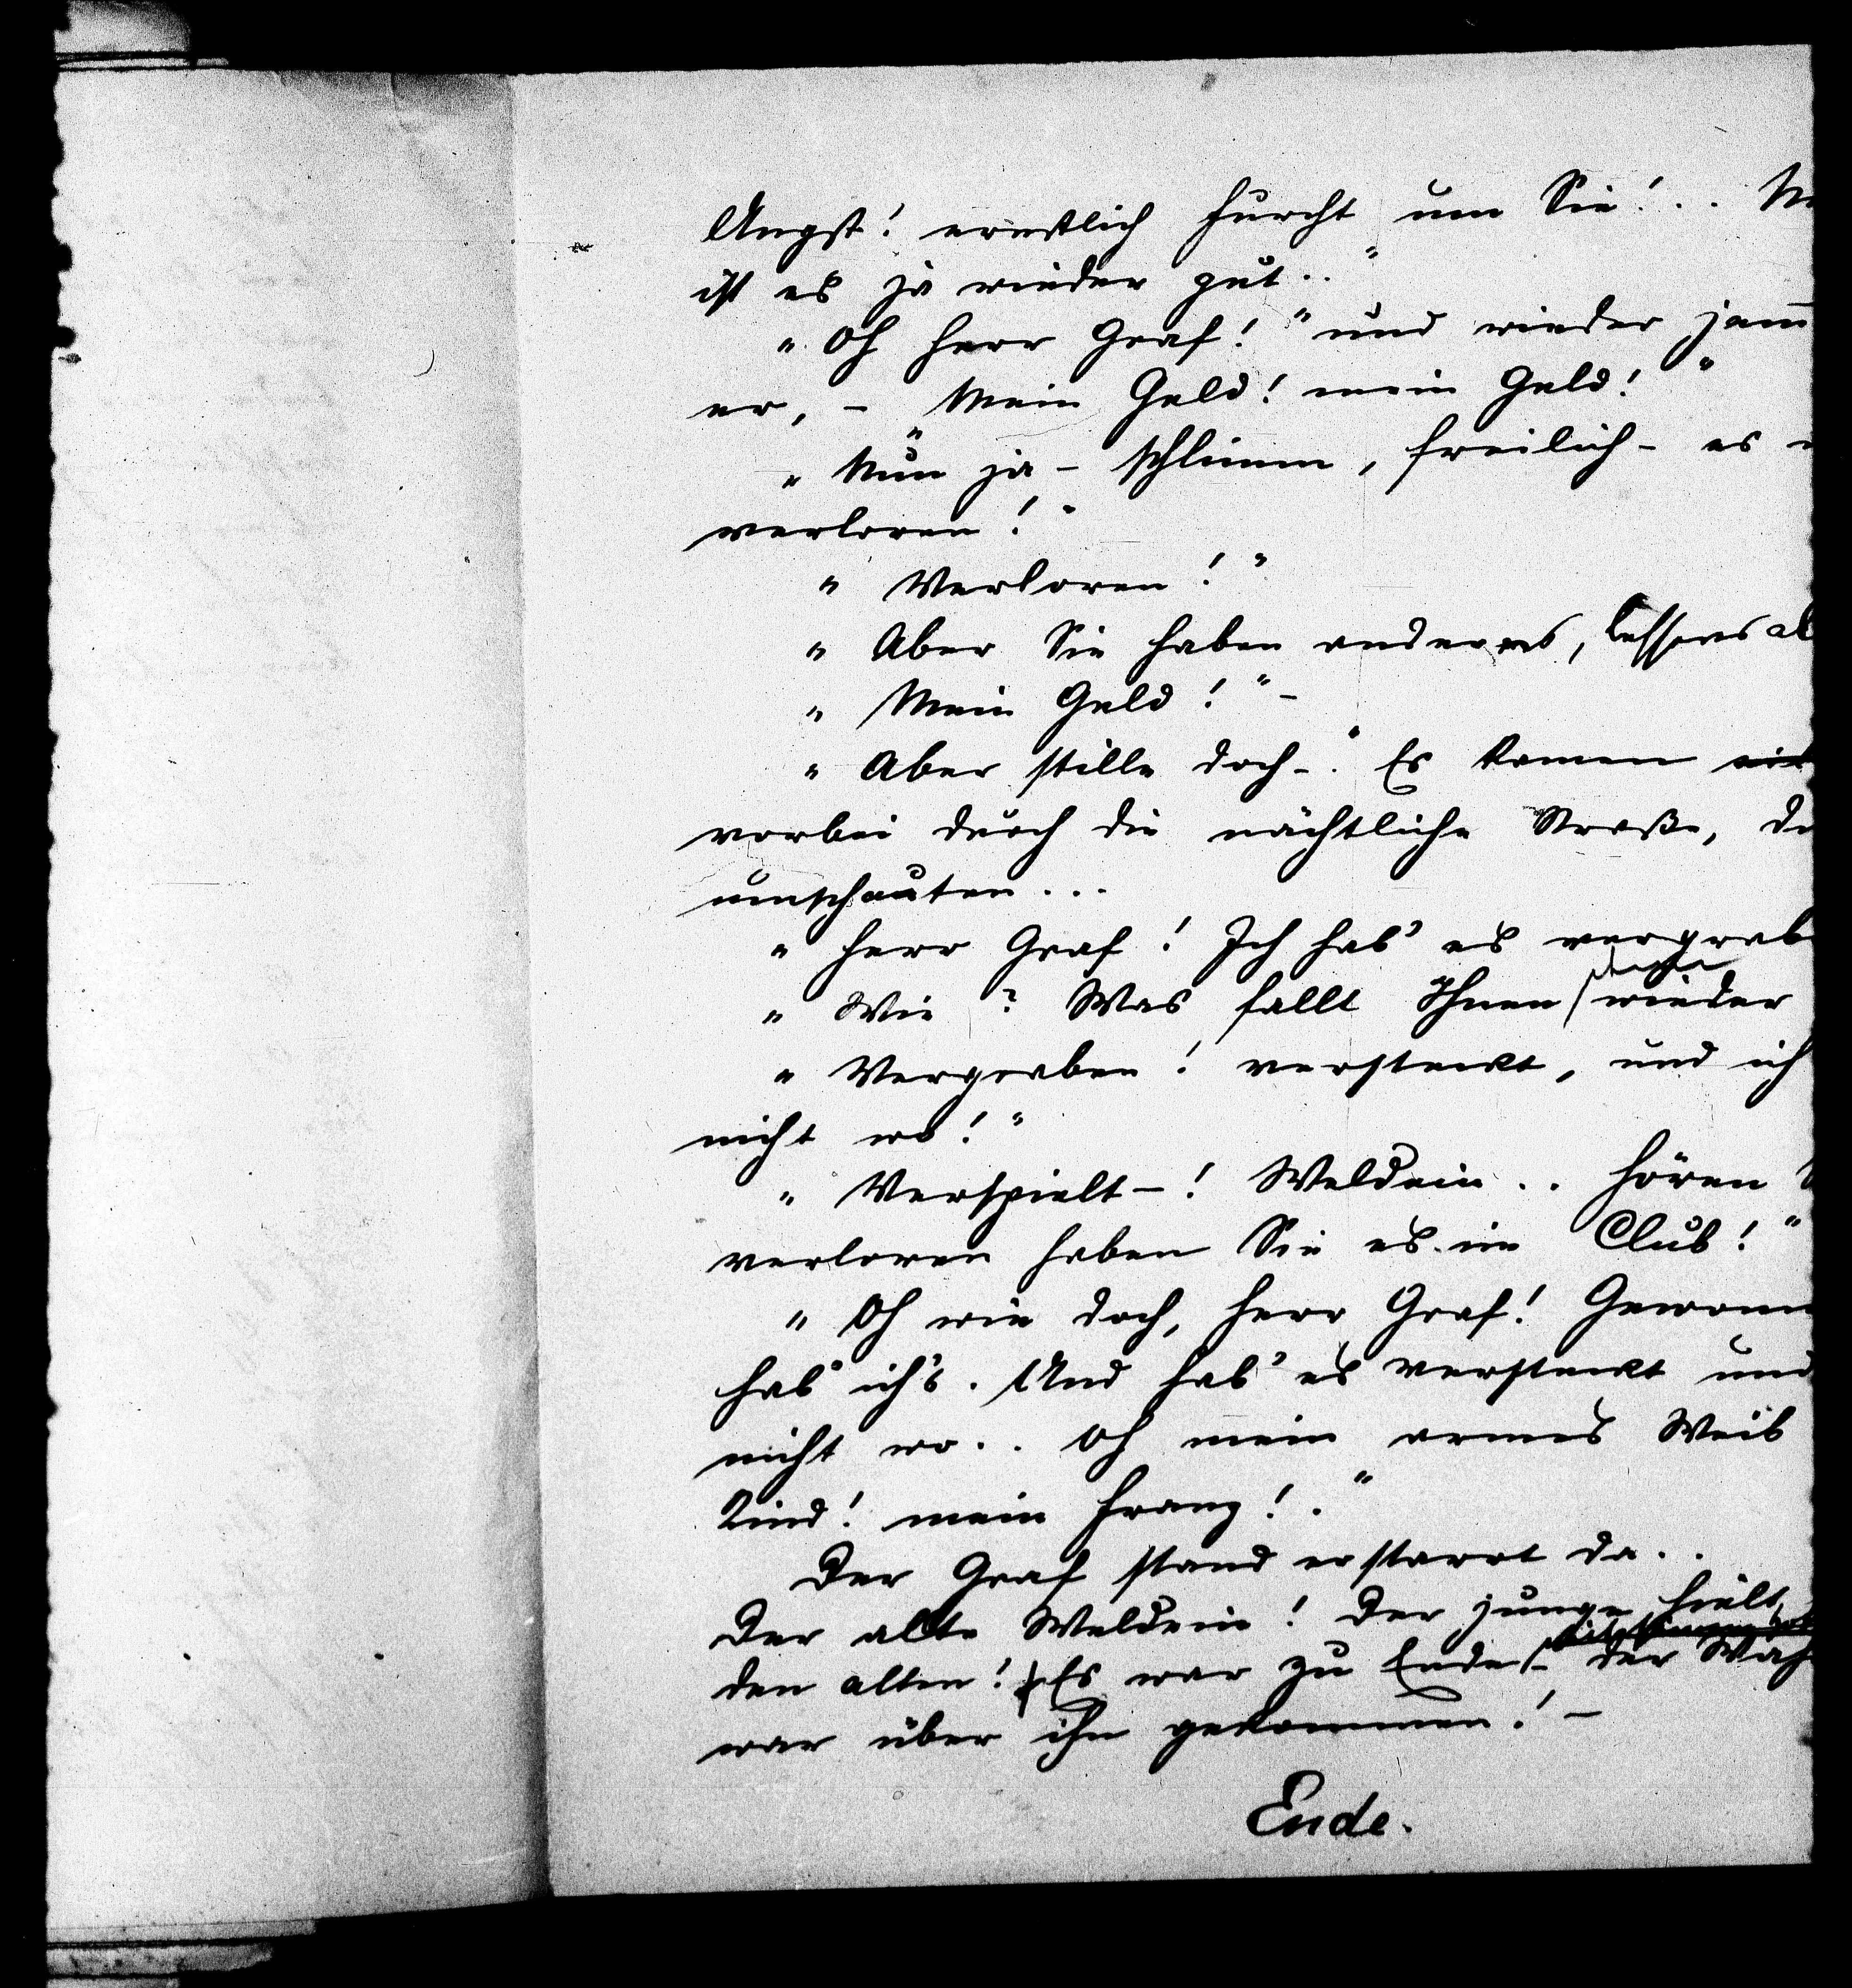 Angst! ernstlich Furcht um Sie! ..
ist es ja wieder gut .."
" Oh Herr Graf! " und wieder jam
er, - " Mein Geld! mein Geld! "
" Nun ja - schlimm, freilich - es
verloren! "
" Verloren! "
" Aber Sie haben anderes, besseres al
" Mein Geld! " -
" Aber stille doch -" Es kamen
vorbei durch die nächtliche Straße, di
umschauten ...
" Herr Graf! Ich hab' es vergrab
" Wie? Was fällt Ihnen wieder
" Vergraben! versteckt, und ich
nicht wo! "
" Verspielt -! Weldein .. hören
verloren haben Sie es im Club! "
" Oh wie doch, Herr Graf! Gewonn
hab' ich's. Und hab' es versteckt und
nicht wo .. oh mein armes Weib
Kind! mein Franz! . "
Der Graf stand erstarrt da ..
Der alte Weldein! Der junge hielt
den alten! Es war zu Ende - der Wah
war über ihn gekommen! -
Ende.